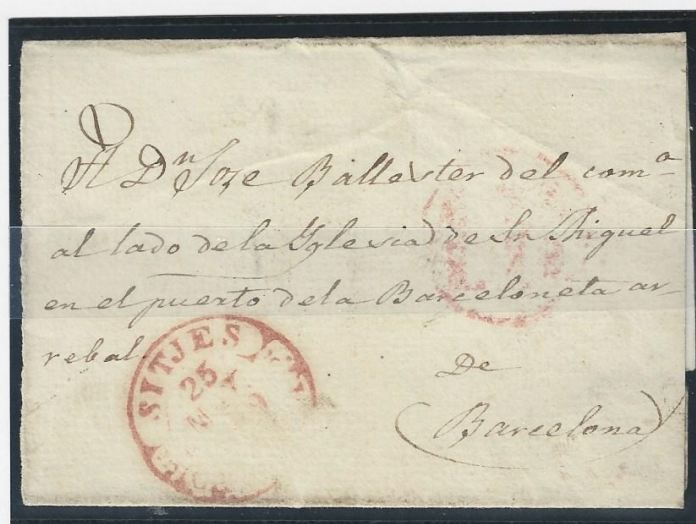 A Dn Jose Ballester del coma
al lado de la Yglesia de Sn Miguel
en el puerto de la Barceloneta ar-
rebal.
De
Barcelona
SITJES
25